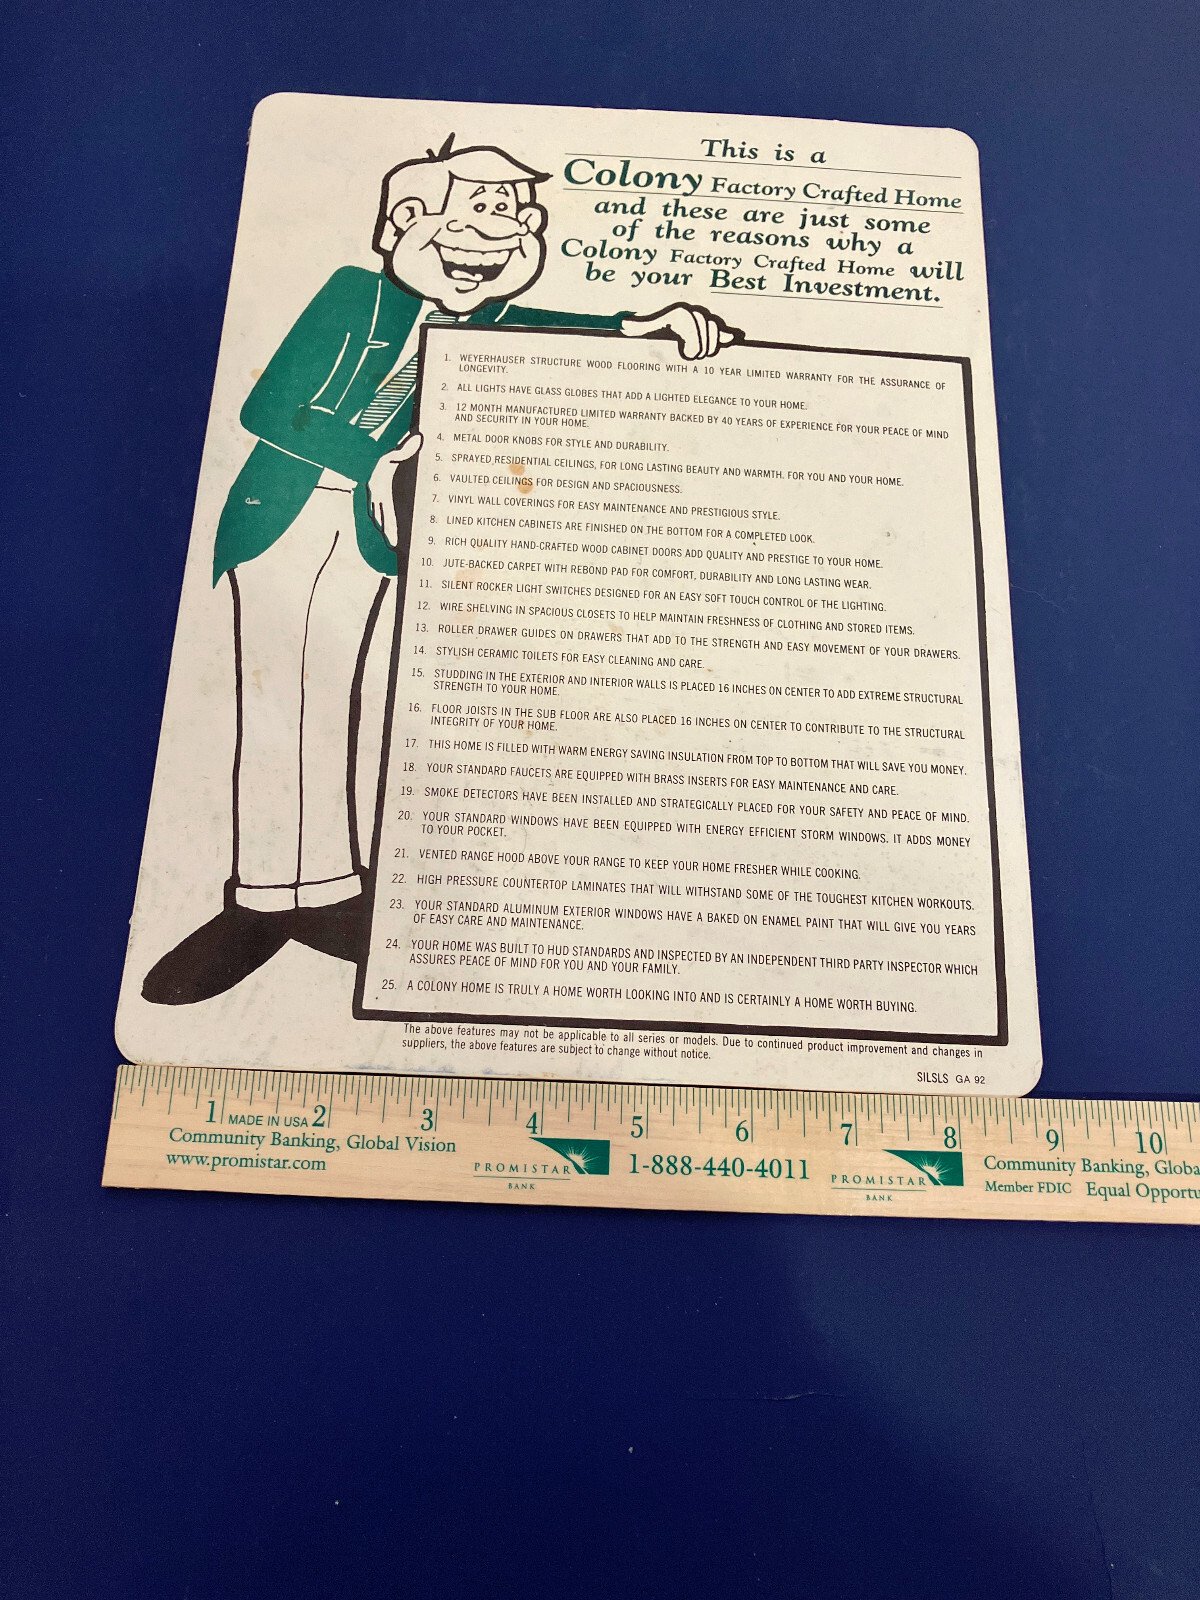 This is a
Colony Factory Crafted Home
and these are just some
of the reasons why a
Colony Factory Crafted Home will
be your Best Investment.
1. WEYERHAUSER STRUCTURE WOOD FLOORING WITH A 10 YEAR LIMITED WARRANTY FOR THE ASSURANCE OF
LONGEVITY.
2. ALL LIGHTS HAVE GLASS GLOBES THAT ADD A LIGHTED ELEGANCE TO YOUR HOME.
3. 12 MONTH MANUFACTURED LIMITED WARRANTY BACKED BY 40 YEARS OF EXPERIENCE FOR YOUR PEACE OF MIND
AND SECURITY IN YOUR HOME.
4. METAL DOOR KNOBS FOR STYLE AND DURABILITY.
5. SPRAYED RESIDENTIAL CEILINGS, FOR LONG LASTING BEAUTY AND WARMTH. FOR YOU AND YOUR HOME.
6. VAULTED CEILINGS FOR DESIGN AND SPACIOUSNESS.
7. VINYL WALL COVERINGS FOR EASY MAINTENANCE AND PRESTIGIOUS STYLE.
8. LINED KITCHEN CABINETS ARE FINISHED ON THE BOTTOM FOR A COMPLETED LOOK.
9. RICH QUALITY HAND-CRAFTED WOOD CABINET DOORS ADD QUALITY AND PRESTIGE TO YOUR HOME.
10. JUTE-BACKED CARPET WITH REBOND PAD FOR COMFORT, DURABILITY AND LONG LASTING WEAR.
11. SILENT ROCKER LIGHT SWITCHES DESIGNED FOR AN EASY SOFT TOUCH CONTROL OF THE LIGHTING.
12. WIRE SHELVING IN SPACIOUS CLOSETS TO HELP MAINTAIN FRESHNESS OF CLOTHING AND STORED ITEMS.
13. ROLLER DRAWER GUIDES ON DRAWERS THAT ADD TO THE STRENGTH AND EASY MOVEMENT OF YOUR DRAWERS.
14. STYLISH CERAMIC TOILETS FOR EASY CLEANING AND CARE.
15. STUDDING IN THE EXTERIOR AND INTERIOR WALLS IS PLACED 16 INCHES ON CENTER TO ADD EXTREME STRUCTURAL
STRENGTH TO YOUR HOME.
16. FLOOR JOISTS IN THE SUB FLOOR ARE ALSO PLACED 16 INCHES ON CENTER TO CONTRIBUTE TO THE STRUCTURAL
INTEGRITY OF YOUR HOME.
17. THIS HOME IS FILLED WITH WARM ENERGY SAVING INSULATION FROM TOP TO BOTTOM THAT WILL SAVE YOU MONEY.
18. YOUR STANDARD FAUCETS ARE EQUIPPED WITH BRASS INSERTS FOR EASY MAINTENANCE AND CARE.
19. SMOKE DETECTORS HAVE BEEN INSTALLED AND STRATEGICALLY PLACED FOR YOUR SAFETY AND PEACE OF MIND.
20. YOUR STANDARD WINDOWS HAVE BEEN EQUIPPED WITH ENERGY EFFICIENT STORM WINDOWS. IT ADDS MONEY
TO YOUR POCKET.
21. VENTED RANGE HOOD ABOVE YOUR RANGE TO KEEP YOUR HOME FRESHER WHILE COOKING.
22. HIGH PRESSURE COUNTERTOP LAMINATES THAT WILL WITHSTAND SOME OF THE TOUGHEST KITCHEN WORKOUTS.
23. YOUR STANDARD ALUMINUM EXTERIOR WINDOWS HAVE A BAKED ON ENAMEL PAINT THAT WILL GIVE YOU YEARS
OF EASY CARE AND MAINTENANCE.
24. YOUR HOME WAS BUILT TO HUD STANDARDS AND INSPECTED BY AN INDEPENDENT THIRD PARTY INSPECTOR WHICH
ASSURES PEACE OF MIND FOR YOU AND YOUR FAMILY.
25. A COLONY HOME IS TRULY A HOME WORTH LOOKING INTO AND IS CERTAINLY A HOME WORTH BUYING.
The above features may not be applicable to all series or models. Due to continued product improvement and changes in
suppliers, the above features are subject to change without notice.
SILSLS GA 92
1 MADE IN USA 2 3 4 5 6 7 8 9 10
Community Banking, Global Vision
www.promistar.com
PROMISTAR
BANK
1-888-440-4011
PROMISTAR
BANK
Community Banking, Globa
Member FDIC Equal Opportu